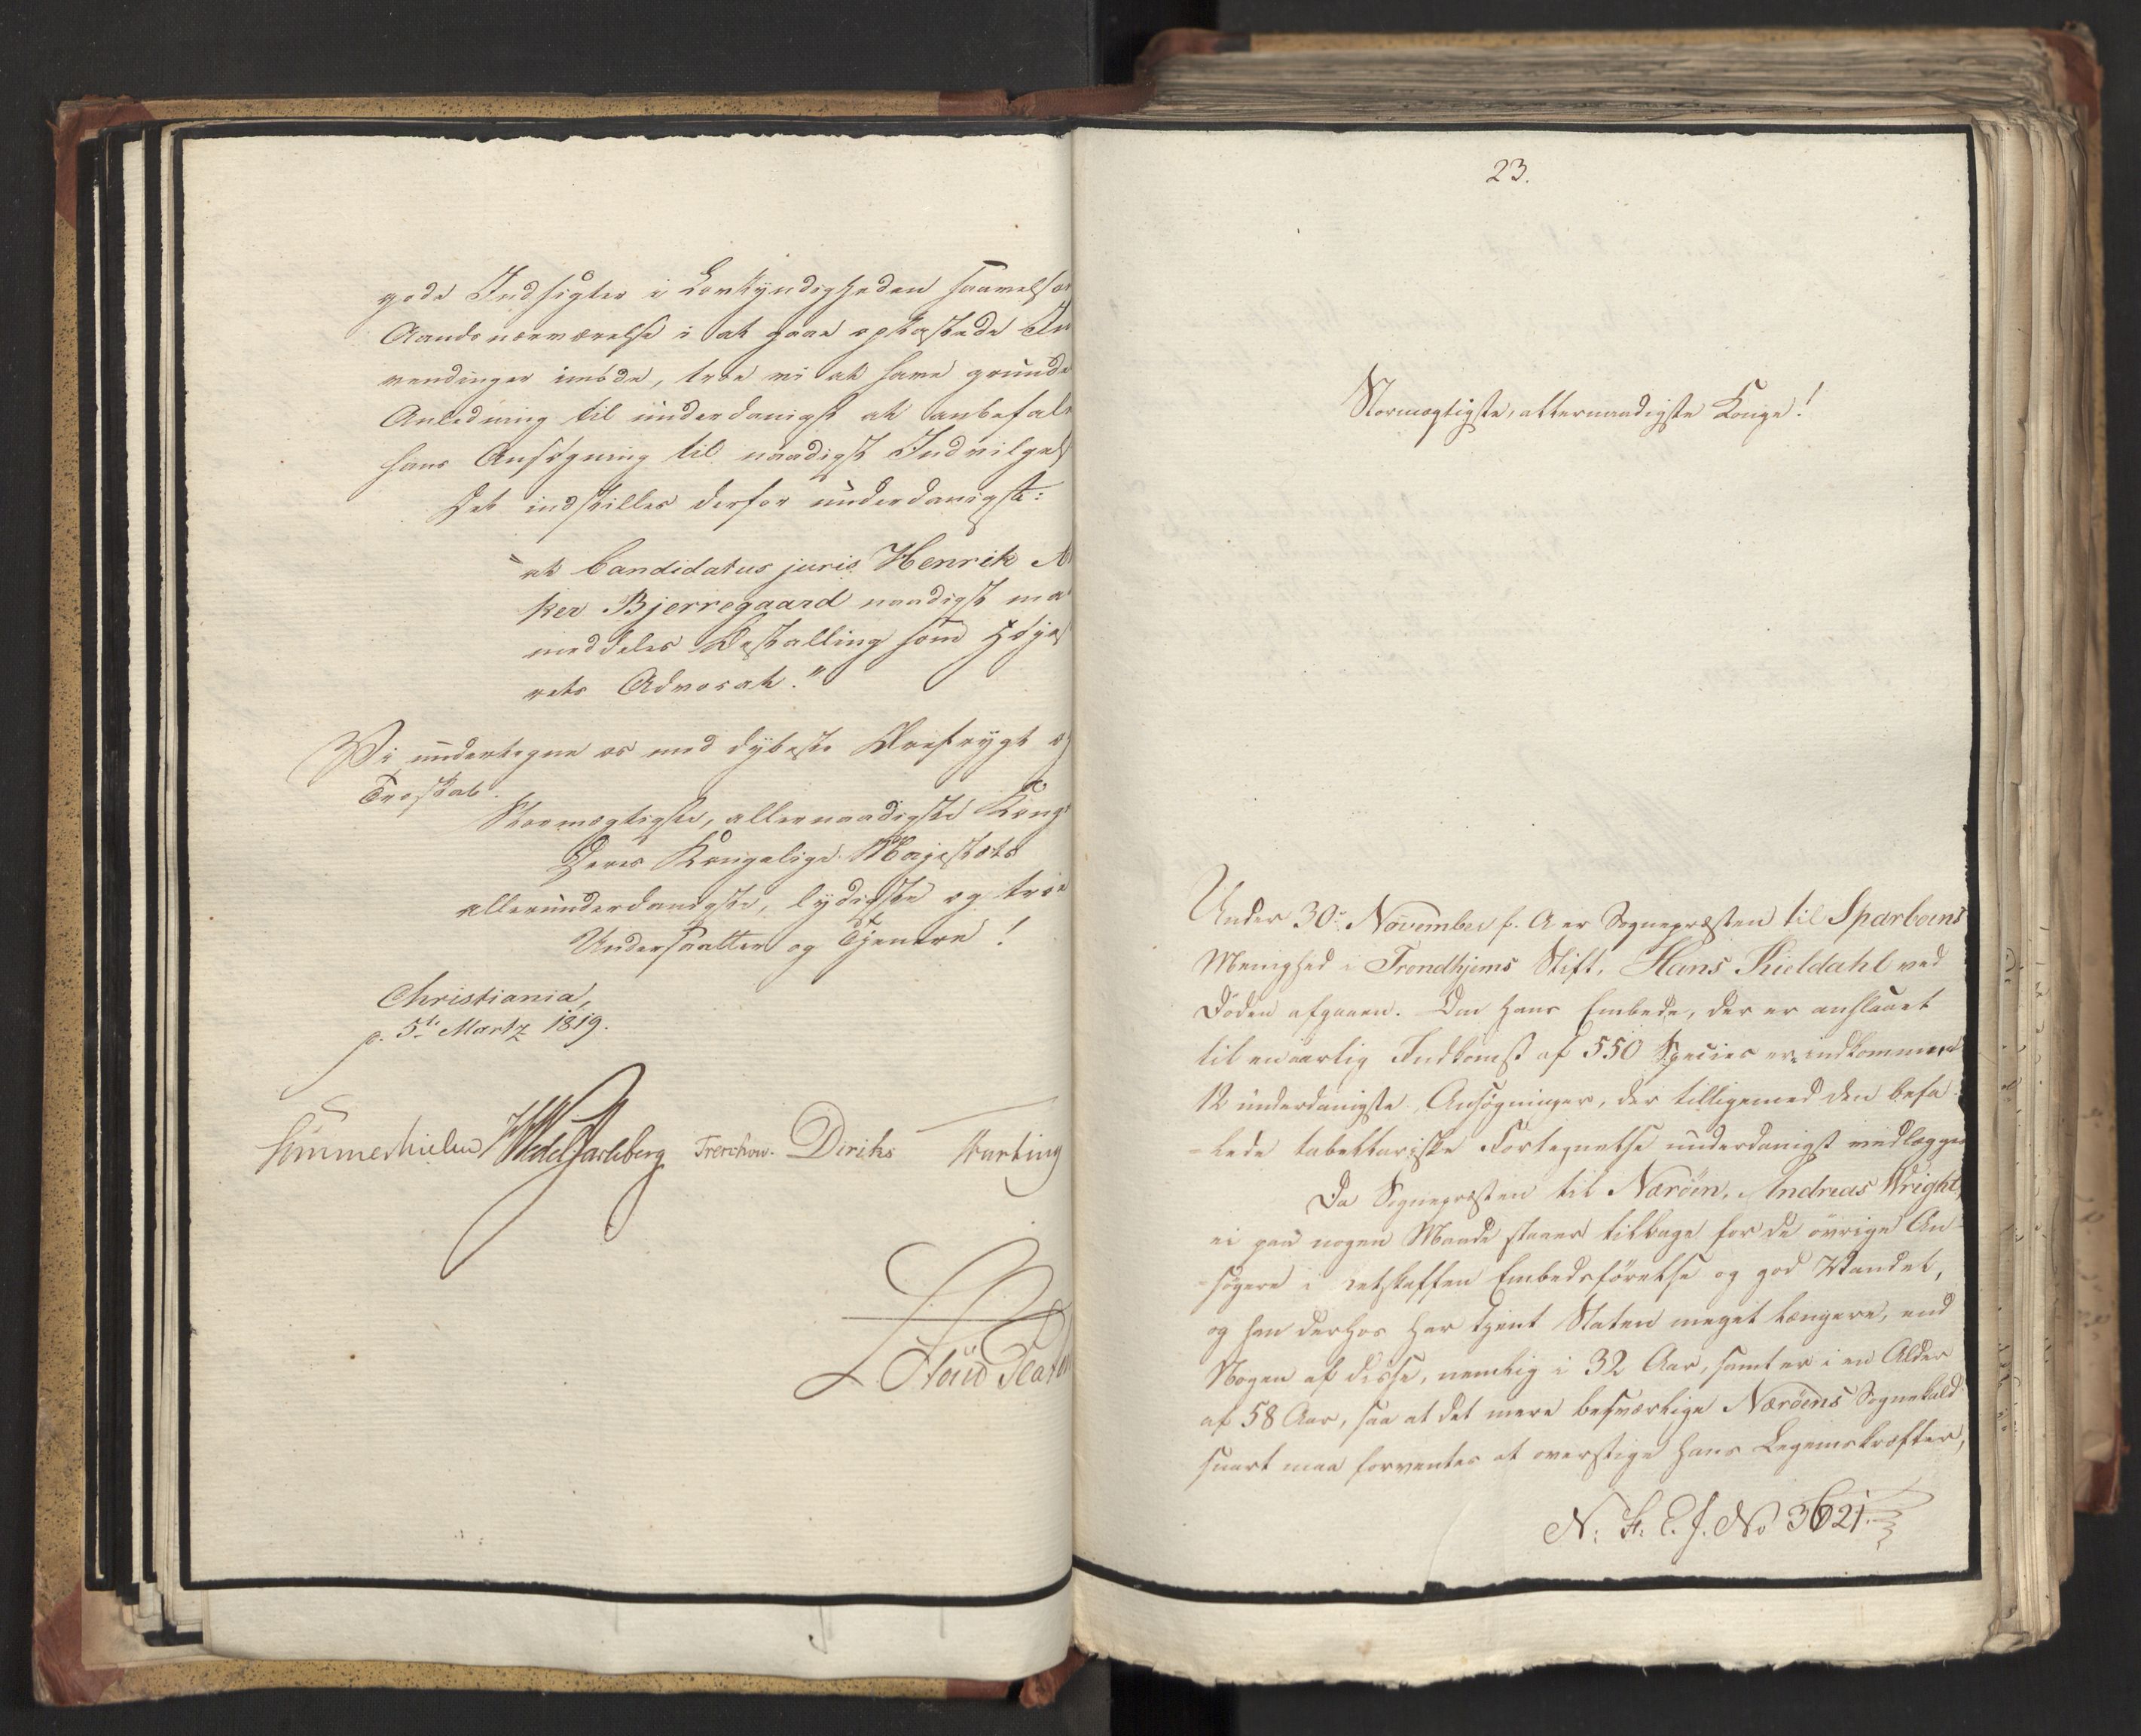 gode Indsigter i Lovkyndigheden saavelso
Aandsnærværelse i at gaae opkastede In
vendinger imöde, troe vi at have grunde
Anledning til underdanigst at anbefale
hans Ansögning til naadigst Indvilgels
Det indstilles derfor underdanigst:
"at Candidatus juris Henrik A
ker Bjerregaard naadigst maa
meddeles Bestalling som Höjes
rets Advocat."
Vi undertegne os med dybeste Ærefrygt og
Troskab.
Stormægtigste, allernaadigste Konge
Deres Kongelige Majestæts
allerunderdanigste, lydigste og troe
Undersaatter og Tjenere!
Christiania,
p. 5te Martz 1819.
Sommerhielm Wedel Jarlsberg Treschow. Diriks Hartwig
23.
Stormægtigste, allernaadigste Konge!
Under 30te November f. A er Sognepræsten til Sparboens
Menighed i Trondhjems Stift, Hans Kieldahl ved
Döden afgaaen. Om hans Embede, der er anslaaet
til en aarlig Indkomst af 550 Species er indkommen
12 underdanigste Ansögninger, der tilligemed den befa
-lede tabellariske Fortegnelse underdanigst vedlægges
Da Sognepræsten til Næröen, Andreas Wright,
ei paa nogen Maade staaer tilbage for de övrige An-
-sögere i retskaffen Embedsförelse og god Vandel,
og han derhos har tjent Staten meget længere, end
Nogen af disse, nemlig i 32 Aar, samt er i en Alder
af 58 Aar, saa at det mere besværlige Næröens Sognekald
snart maa forventes at overstige hans Legemskræfter,
N. F. E. J. No 3621.